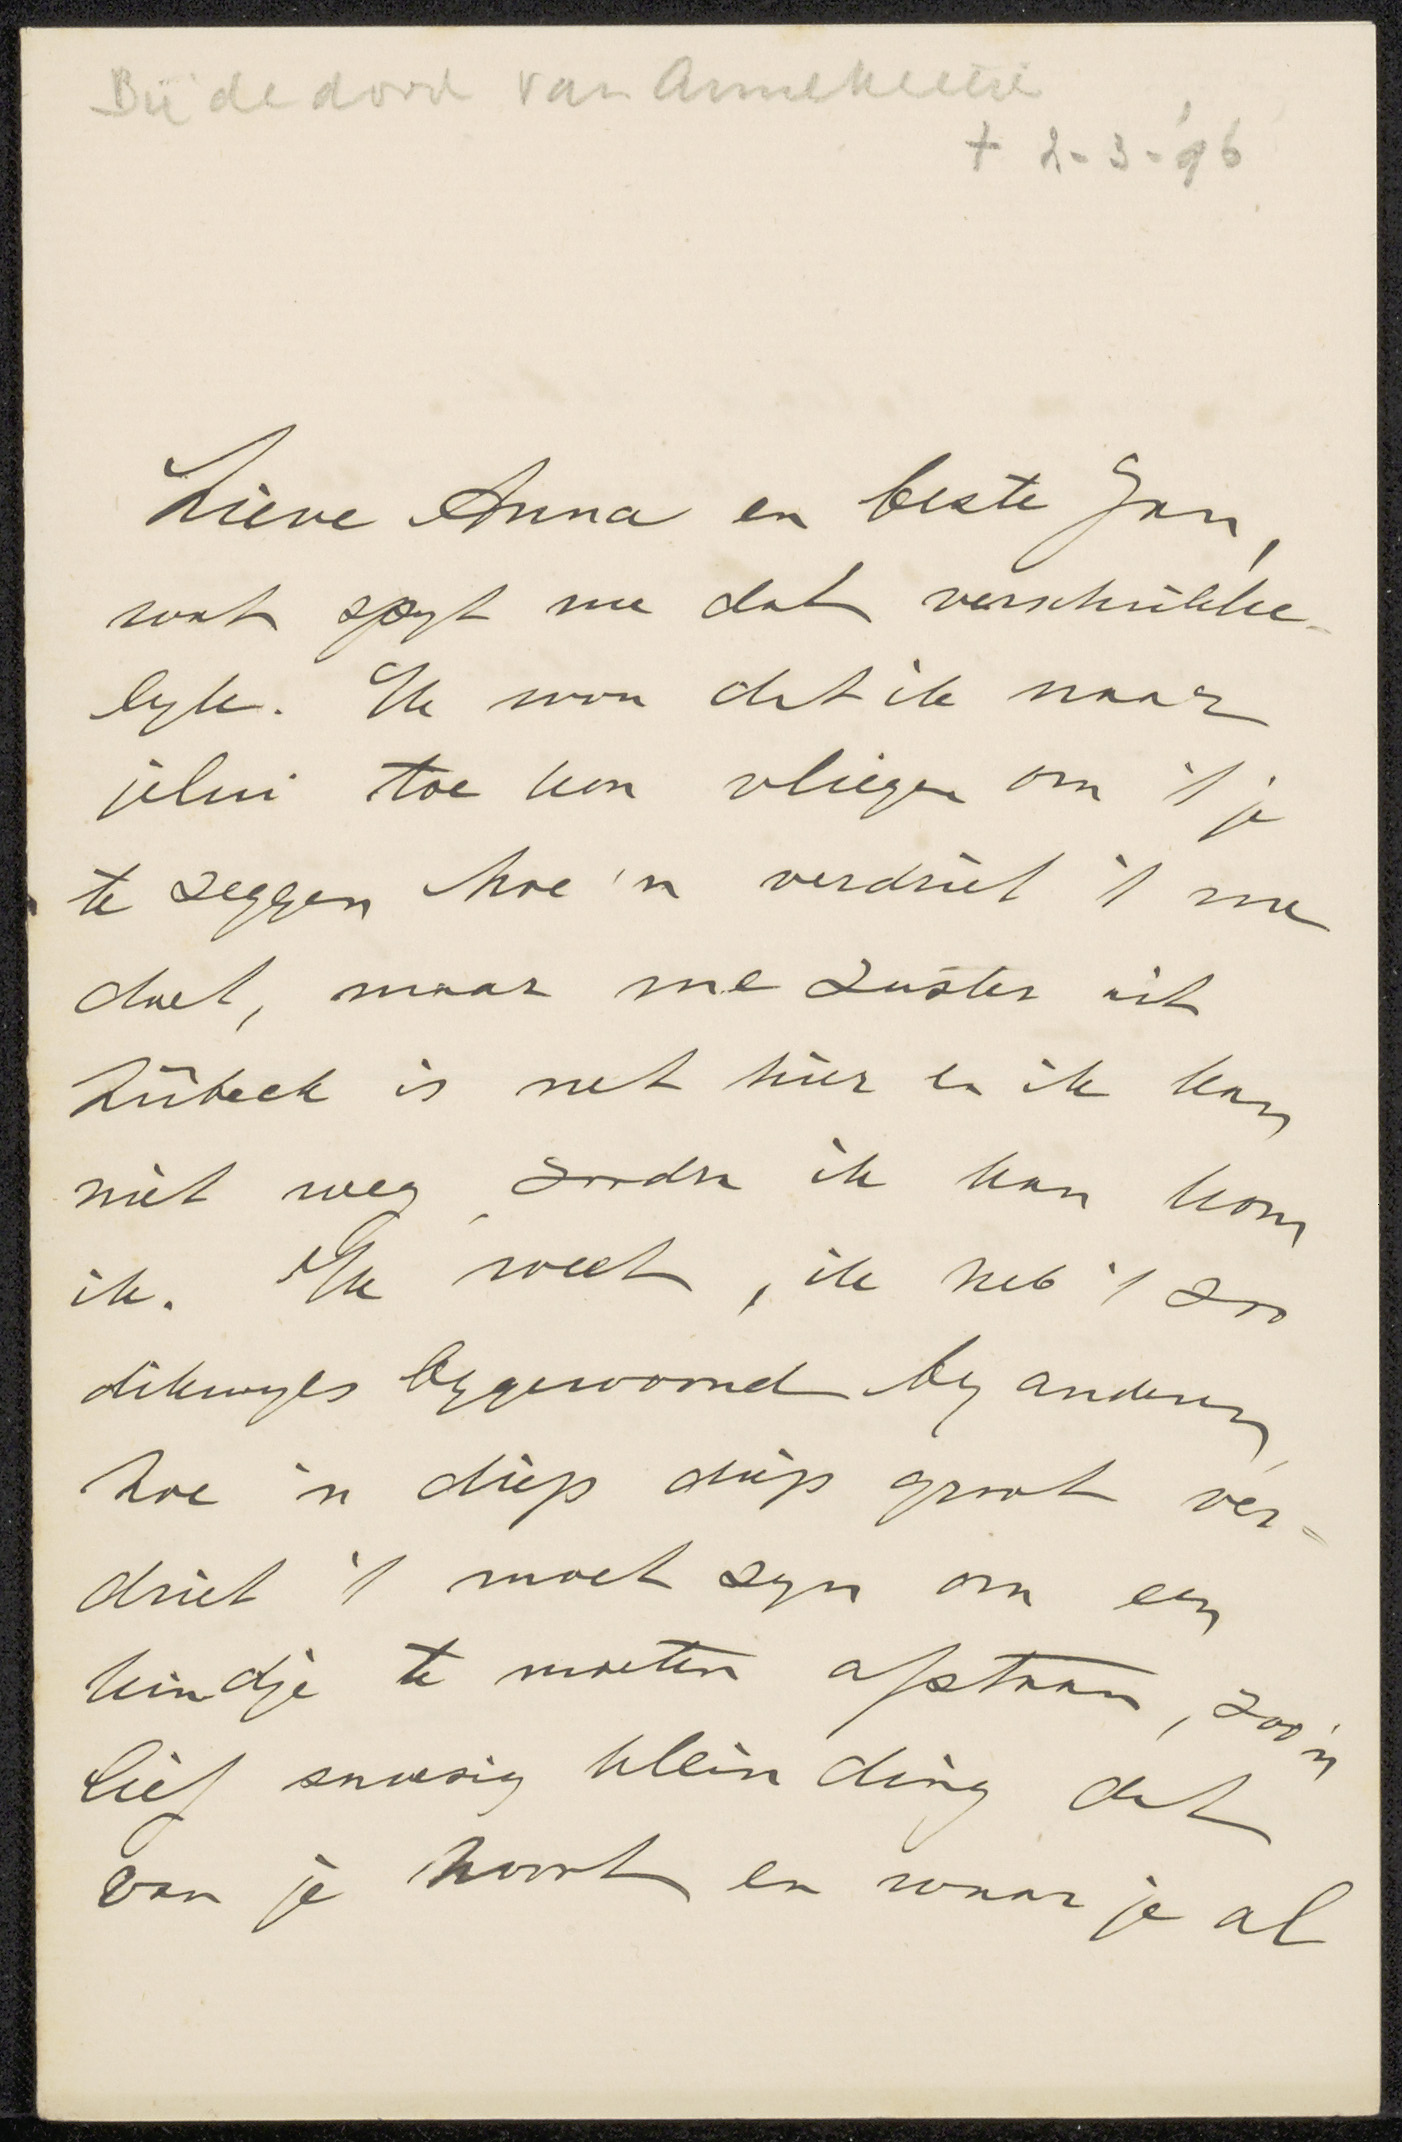 Bij de dood van Annekeetje
† 2-3-'96
Lieve Anna en beste Jan,
wat spyt me dat verschrikke-
lyk. Ik wou dat ik naar
jelui toe kon vliegen om 't je
te zeggen hoe 'n verdriet 't me
doet, maar me zuster uit
Lübeck is net hier en ik kan
niet weg, zoodra ik kan kom
ik. Ik weet, ik heb 't zoo
dikwyls bygewoond by anderen,
hoe 'n diep diep groot ver-
driet 't moet zyn om een
kindje te moeten afstaan, zoo'n
lief snoezig klein ding dat
van je hoort en waar je al